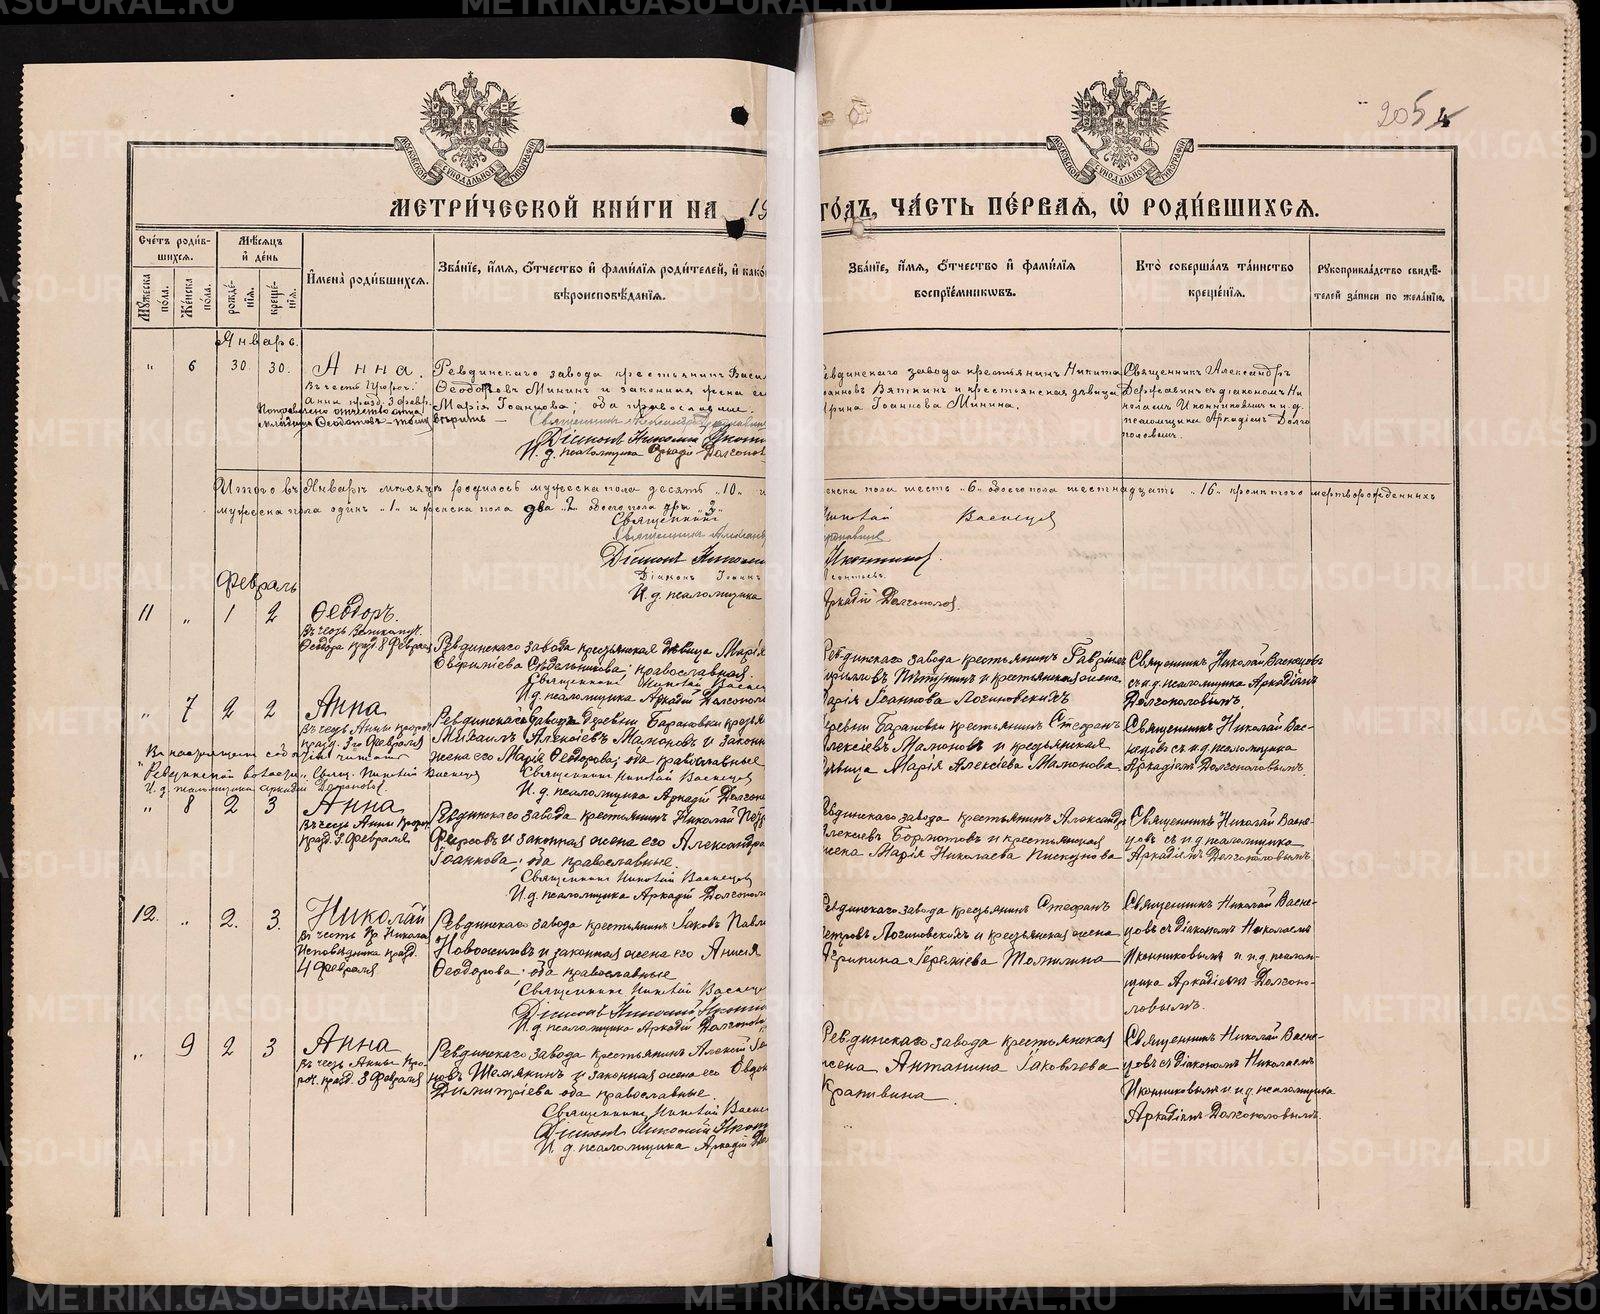 205
МЕТРИ́ЧЕСКОЙ КНИ́ГИ НА 19 ГО́ДЪ, ЧА́СТЬ ПЕ́РВАЯ, Ѽ РОДИ́ВШИХСЯ.
Сче́тъ роди́вшихся.
Мѣ́сяцъ и҆ де́нь
И҆мена̀ роди́вшихся.
Зва́нїе, и҆́мя, ѻ҆́тчество и҆ фами́лїя роди́телей, и҆ како́
вѣроисповѣ́данїя.
Зва́нїе, и҆́мя, ѻ҆́тчество и҆ фами́лїя
воспрїе́мникωвъ.
Кто̀ соверша́лъ та́инство
креще́нїя.
Рукоприкла́дство свидѣ́-
телей за́писи по жела́нїю.
Му́жеска по́ла.
Же́нска по́ла.
рожде́нїя.
креще́нїя.
Январь.
" 6 30. 30. Анна.
Въ честь Прор.
Анны празд. 3 Февр.
Ревдинскаго завода крестьянинъ Васи
Ѳеодоровъ Мининъ и законная жена е
Марія Іоаннова; оба православные.
Діаконъ Николай Иконн
И. д. псаломщика Аркадій Долгопол
евдинскаго завода крестьянинъ Никита
оанновъ Вяткинъ и крестьянская дѣвица
рина Іоаннова Минина.
Священникъ Александръ
Державинъ съ діакономъ Ни
колаемъ Иконниковымъ и и.д.
псаломщика Аркадіемъ Долго
половымъ.
Итого въ Январѣ мѣсяцѣ родилось мужеска пола десять "10" и
женска пола шесть "6" обоего пола шестнадцать "16" кромѣ того мертворожденныхъ
мужеска пола одинъ "1" и женска пола два "2" обоего пола три "3"
Священникъ Николай Васнецов
Діаконъ Николай Иконников.
И. д. псаломщика Аркадій Долгополов.
Февраль
11 " 1 2 Ѳеодоръ.
Въ честь Великомуч.
Ѳеодора празд. 8 Февраля
Ревдинскаго завода крестьянская дѣвица Марія
Евфиміева Сѣдельникова; православная.
Священникъ Николай Васнец
И. д. псаломщика Аркадій Долгопол
Ревдинскаго завода крестьянинъ Гавріилъ
и крестьянская жена
Марія Іоаннова Логиновскихъ
Священникъ Николай Васнецовъ
съ и.д. псаломщика Аркадіемъ
Долгополовымъ.
" 7 2 2 Анна
Въ честь Анны пророч.
празд. 3го Февраля
Ревдинскаго завода деревни Барановки крестья
Михаилъ Алексіевъ Мамоновъ и законн
жена его Марія Ѳеодорова; оба православные
Священникъ Николай Васнецов
И. д. псаломщика Аркадій Долгопол
деревни Барановки крестьянинъ Стефанъ
Алексіевъ Мамоновъ и крестьянская
дѣвица Марія Алексіева Мамонова
Священникъ Николай Вас-
нецовъ съ и.д. псаломщика
Аркадіемъ Долгополовымъ.
" 8 2 3 Анна
Въ честь Анны Пророч.
празд. 3 Февраля
Ревдинскаго завода крестьянинъ Николай Пет
Фирсовъ и законная жена его Александра
Іоаннова; оба православные.
Священникъ Николай Васнецов
И. д. псаломщика Аркадій Долгопол
Ревдинскаго завода крестьянинъ Александръ
Алексіевъ Бормотовъ и крестьянская
жена Марія Николаева Пискунова
Священникъ Николай Васне-
цовъ съ и.д. псаломщика
Аркадіемъ Долгополовымъ
12. " 2. 3. Николай
Въ честь Пр. Николая
Исповѣдника празд.
4 Февраля
Ревдинскаго завода крестьянинъ Іаковъ Павл
Новожиловъ и законная жена его Анисія
Ѳеодорова; оба православные
Священникъ Николай Васнец
Діаконъ Николай Иконн
И. д. псаломщика Аркадій Долгопол
евдинскаго завода крестьянинъ Стефанъ
етровъ Логиновскихъ и крестьянская жена
Агрипина Іереміева Томилина
Священникъ Николай Васне-
цовъ съ Діакономъ Николаемъ
Иконниковымъ и и.д. псалом-
щика Аркадіемъ Долгопо-
ловымъ.
" 9 2 3 Анна
Въ честь Анны Про-
роч. празд. 3 Февраля
Ревдинскаго завода крестьянинъ Алексій Іо
новъ Шемякинъ и законная жена его Евдок
Димитріева оба православные.
Священникъ Николай Васнец
Діаконъ Николай Иконн
И. д. псаломщика Аркадій До
Ревдинскаго завода крестьянская
жена Антонина Іаковлева
Крапивина.
Священникъ Николай Васне-
цовъ съ Діакономъ Николаемъ
Иконниковымъ и и.д. псаломщика
Аркадіемъ Долгополовымъ.
METRIKI.GASO-URAL.RU